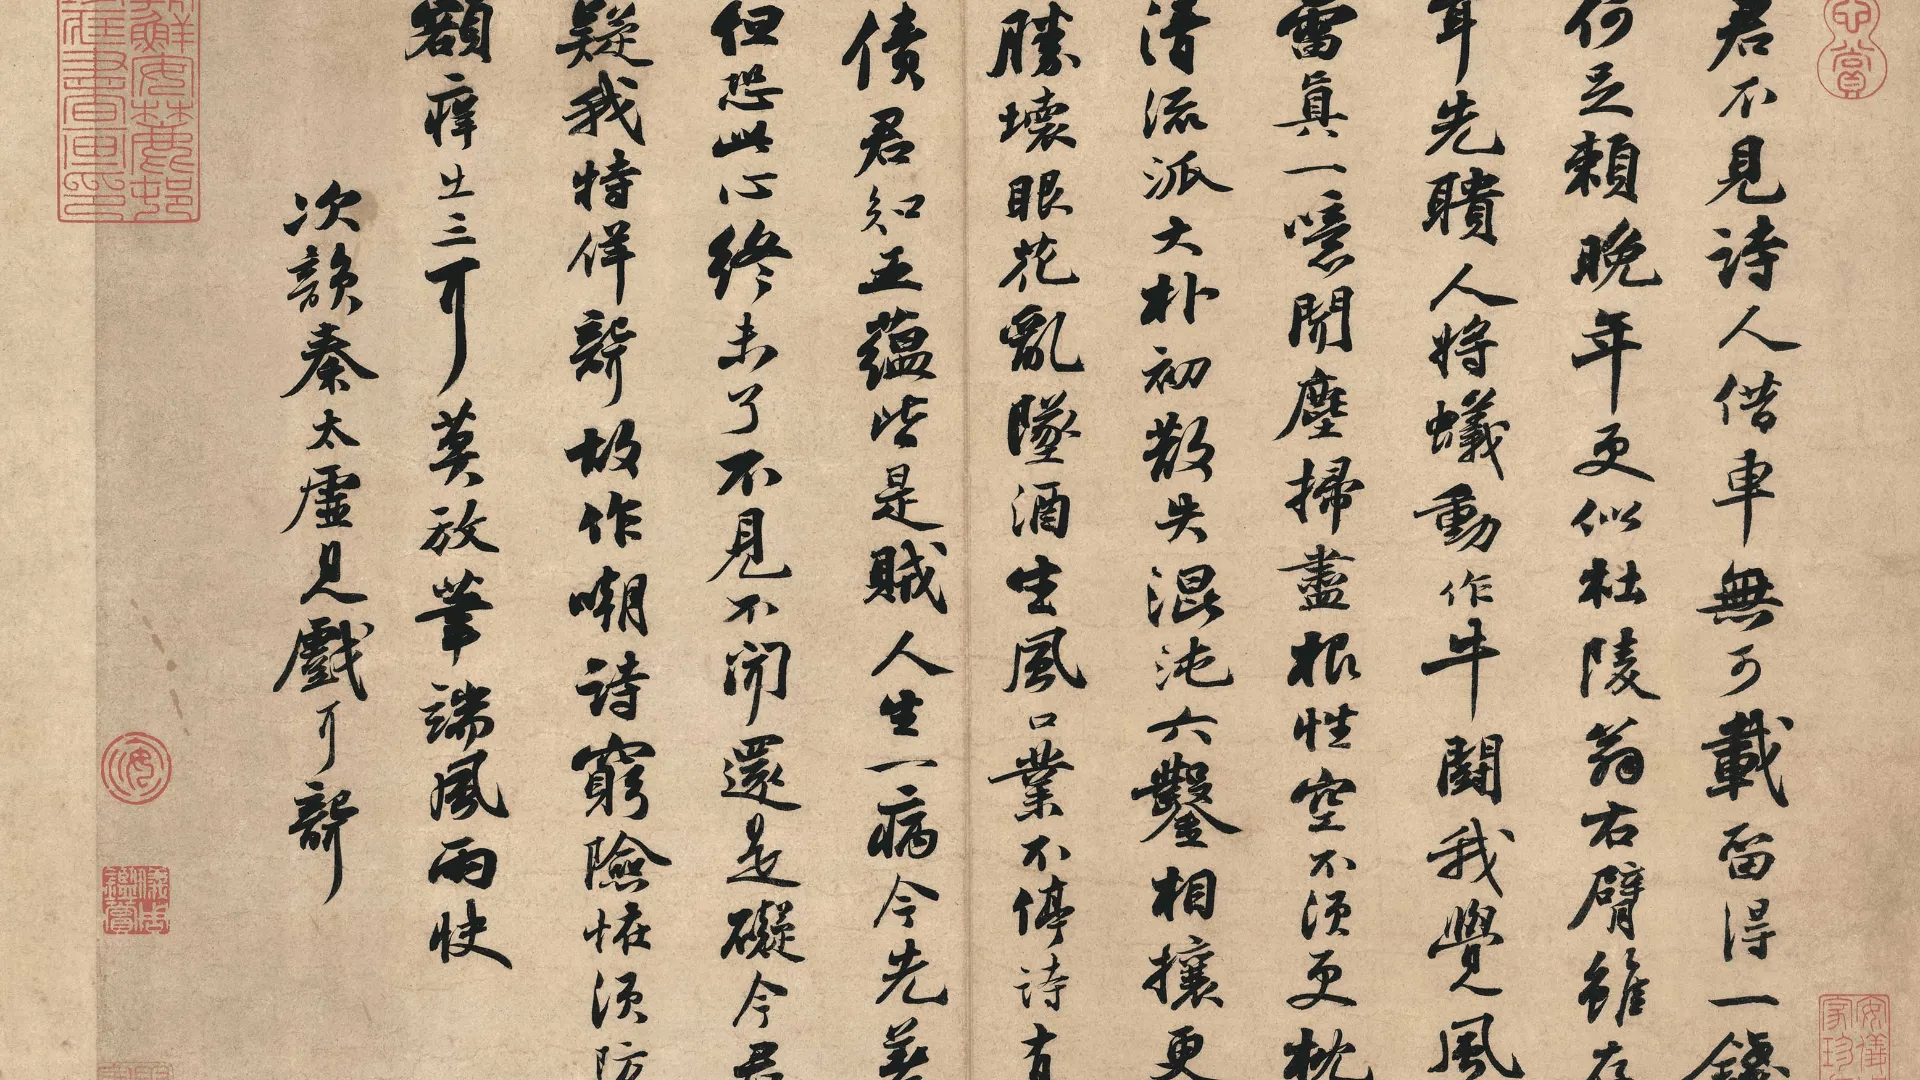 君不見詩人借車無可載留得一錢
何足賴晚年更似杜陵翁右臂雖存
耳先聵人將蟻動作牛鬪我覺風
雷真一噫聞塵掃盡根性空不須更枕
清流派大朴初散失混沌六鑿相攘更
勝壞眼花亂墜酒生風口業不停詩有
債君知五蘊皆是賊人生一病今先差
但恐此心終未了不見不聞還是礙今君
疑我特佯聾故作嘲詩窮險怪須防
額痒出三耳莫放筆端風雨快
次韻秦太虛見戲耳聾
朝鮮安
珍藏書畫印
心賞
安儀
家珍